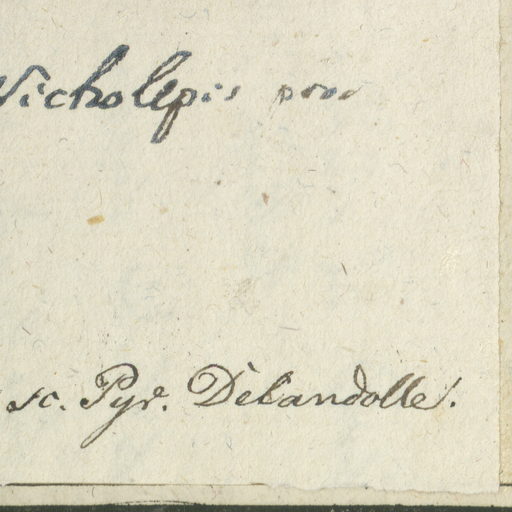 Tricholepis proc
sc. Pyr. Décandolle.